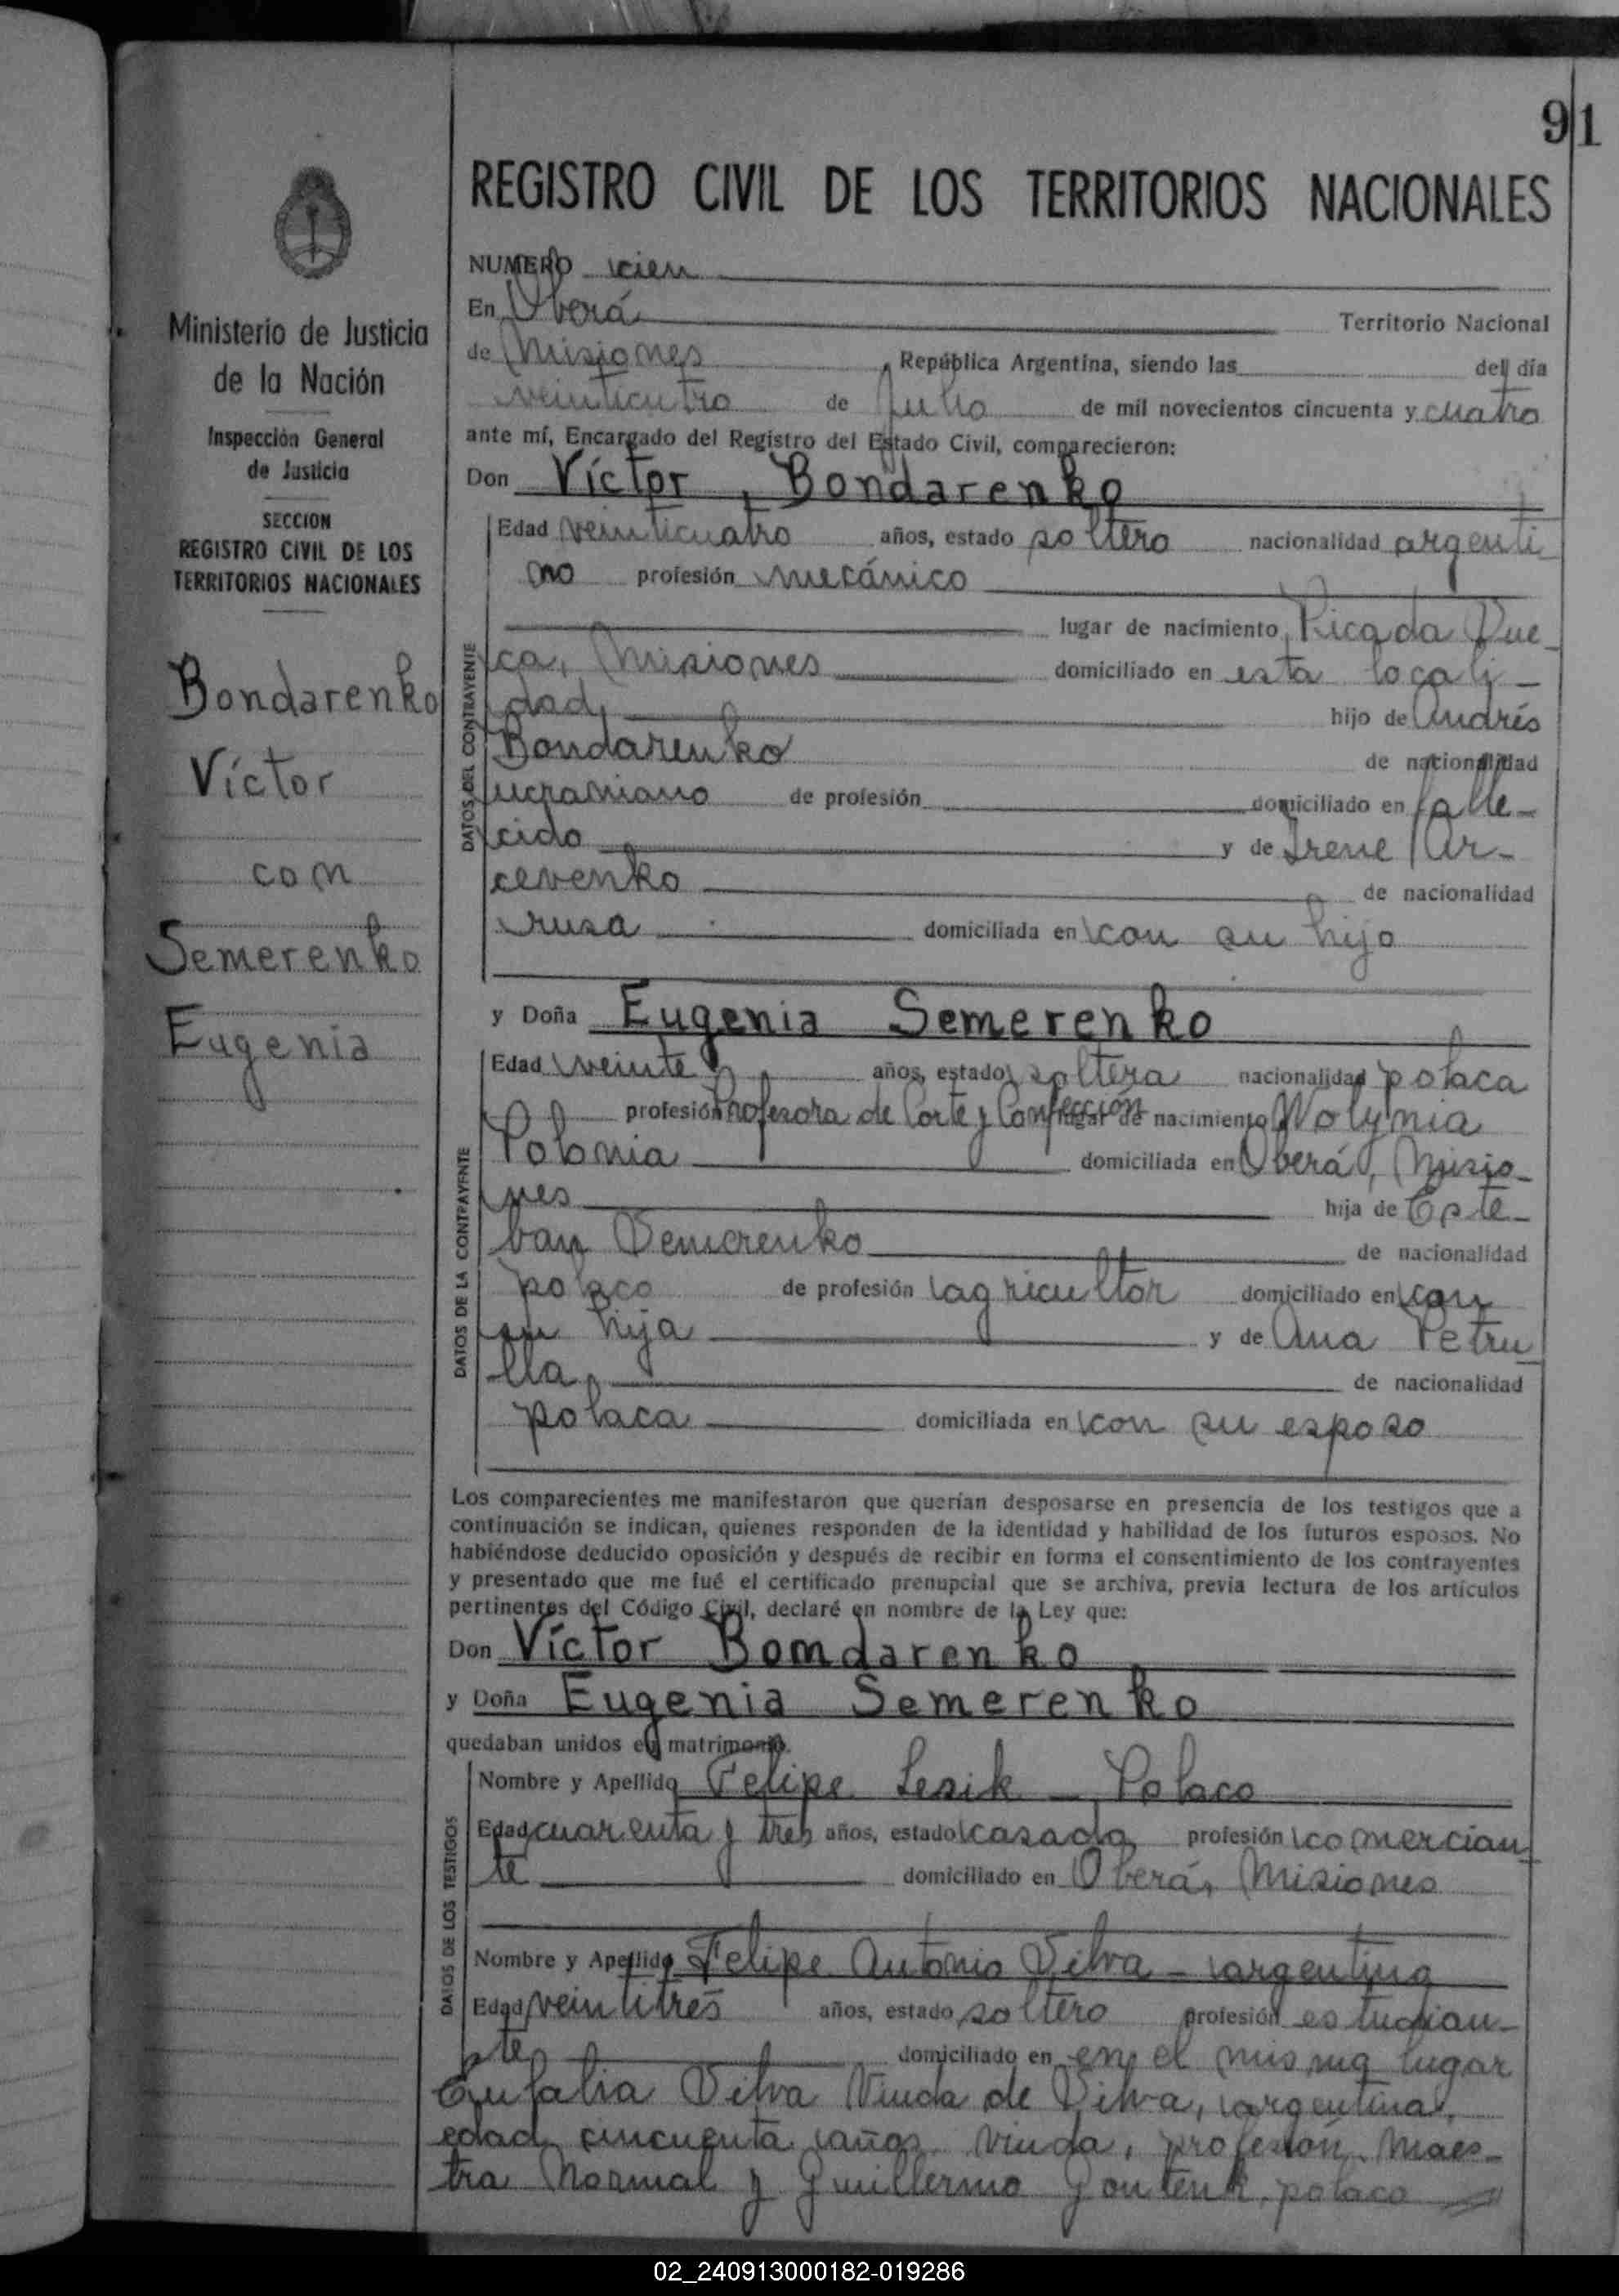 91
REGISTRO CIVIL DE LOS TERRITORIOS NACIONALES
Ministerio de Justicia
de la Nación
Inspección General
de Justicia
SECCION
REGISTRO CIVIL DE LOS
TERRITORIOS NACIONALES
Bondarenko
Víctor
con
Semerenko
Eugenia
NUMERO cien
En Oberá Territorio Nacional
de Misiones, República Argentina, siendo las del día
veinticutro de Julio de mil novecientos cincuenta y cuatro
ante mí, Encargado del Registro del Estado Civil, comparecieron:
Don Víctor, Bondarenko
DATOS DEL CONTRAYENTE
Edad veinticuatro años, estado soltero nacionalidad argenti
no profesión mecánico
lugar de nacimiento Picada Sue
ca, Misiones domiciliado en esta locali-
dad, hijo de Andrés
Bondarenko de nacionalidad
ucraniano de profesión domiciliado en falle-
cido y de Irene Ar-
cevenko de nacionalidad
rusa domiciliada en con su hijo
y Doña Eugenia Semerenko
DATOS DE LA CONTRAYENTE
Edad veinte años, estado soltera nacionalidad polaca
profesión Profesora de Corte y Confección lugar de nacimiento Wolynia
Polonia domiciliada en Oberá, Misio-
nes hija de Este-
ban Semerenko de nacionalidad
polaco de profesión agricultor domiciliado en con
su hija y de Ana Petru
lla, de nacionalidad
polaca domiciliada en con su esposo
Los comparecientes me manifestaron que querían desposarse en presencia de los testigos que a
continuación se indican, quienes responden de la identidad y habilidad de los futuros esposos. No
habiéndose deducido oposición y después de recibir en forma el consentimiento de los contrayentes
y presentado que me fué el certificado prenupcial que se archiva, previa lectura de los artículos
pertinentes del Código Civil, declaré en nombre de la Ley que:
Don Víctor Bomdarenko
y Doña Eugenia Semerenko
quedaban unidos en matrimonio.
DATOS DE LOS TESTIGOS
Nombre y Apellido Felipe Lesik - Polaco
Edad cuarenta y tres años, estado casado profesión comercian
te domiciliado en Oberá, Misiones
Nombre y Apellido Felipe Antonio Silva - argentino
Edad veintitrés años, estado soltero profesión estudian-
te domiciliado en en el mismo lugar
Eufalia Silva Viuda de Silva, argentina,
edad cincuenta años viuda, profesión Maes-
tra Normal y Guillermo polaco
02_240913000182-019286